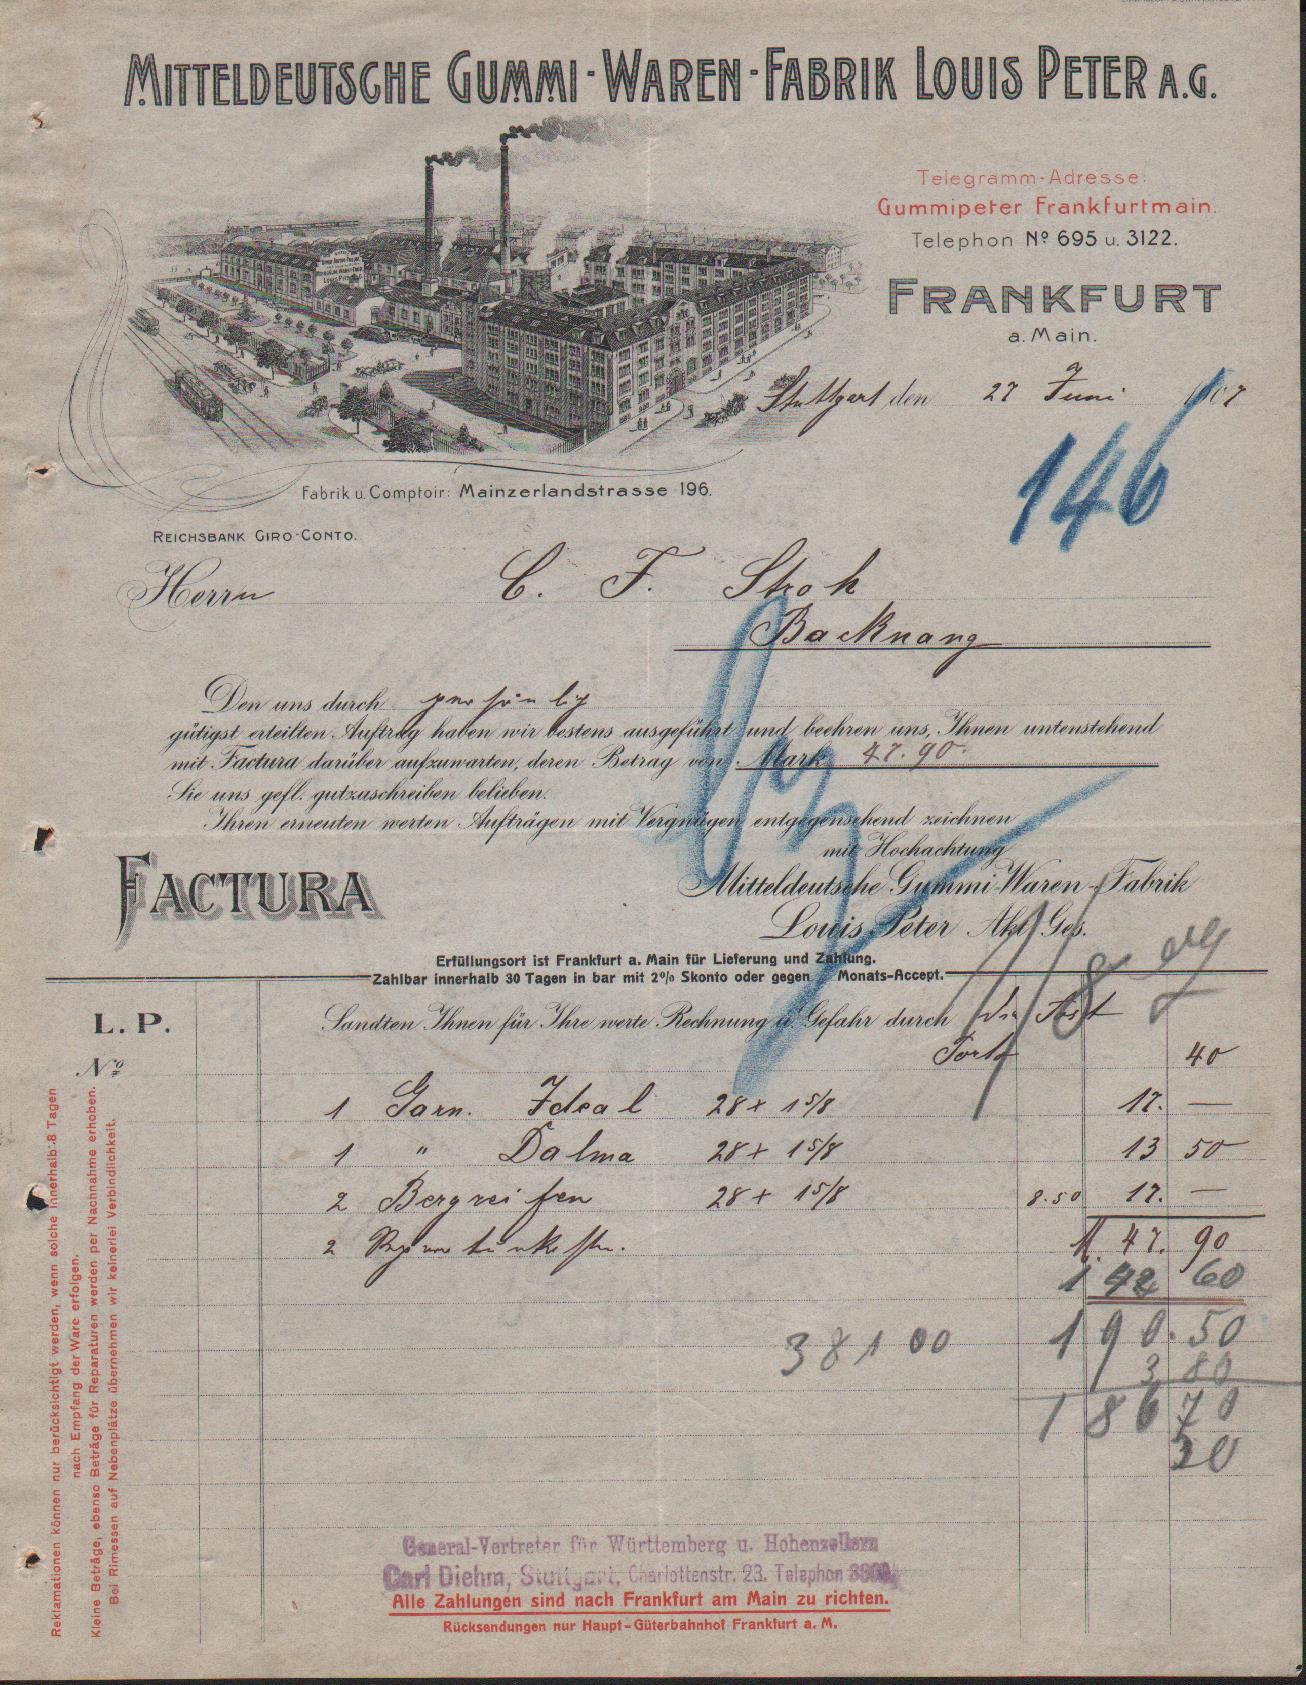 MITTELDEUTSCHE GUMMI-WAREN-FABRIK LOUIS PETER A.G.
Telegramm-Adresse:
Gummipeter Frankfurtmain.
Telephon Nº 695 u. 3122.
FRANKFURT
a. Main.
Stuttgart, den 27 Juni
146
Fabrik u. Comptoir: Mainzerlandstrasse 196.
REICHSBANK GIRO-CONTO.
Herrn C. F. Stroh
Backnang
Den uns durch persönlich
gütigst erteilten Auftrag haben wir bestens ausgeführt und beehren uns, Ihnen untenstehend
mit Factura darüber aufzuwarten, deren Betrag von Mark 47.90.
Sie uns gefl. gutzuschreiben belieben.
Ihren erneuten werten Aufträgen mit Vergnügen entgegensehend zeichnen
mit Hochachtung
Mitteldeutsche Gummi-Waren-Fabrik
Louis Peter Akt. Ges.
FACTURA
Erfüllungsort ist Frankfurt a. Main für Lieferung und Zahlung.
Zahlbar innerhalb 30 Tagen in bar mit 2% Skonto oder gegen Monats-Accept.
L. P.
Nº
Sandten Ihnen für Ihre werte Rechnung u. Gefahr durch die Post
Porto 40
1 Garn. Ideal 28 x 1 5/8 17. —
1 " Dalma 28 x 1 5/8 13 50
2 Bergreifen 28 x 1 5/8 8.50 17. —
2
47. 90
142 60
190.50
381 00
3 80
186 70
General-Vertreter für Württemberg u. Hohenzollern
Carl Diehm, Stuttgart, Charlottenstr. 23. Telephon
Alle Zahlungen sind nach Frankfurt am Main zu richten.
Rücksendungen nur Haupt-Güterbahnhof Frankfurt a. M.
Reklamationen können nur berücksichtigt werden, wenn solche innerhalb 8 Tagen
nach Empfang der Ware erfolgen.
Kleine Beträge, ebenso Beträge für Reparaturen werden per Nachnahme erhoben.
Bei Rimessen auf Nebenplätze übernehmen wir keinerlei Verbindlichkeit.